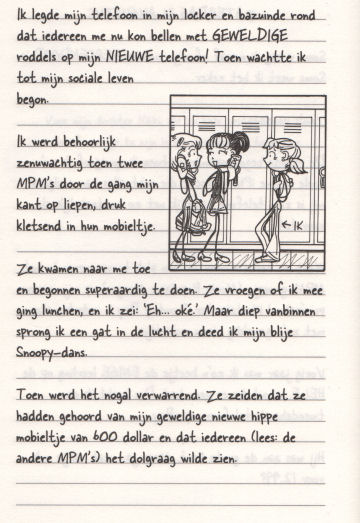 Ik legde mijn telefoon in mijn locker en bazuinde rond
dat iedereen me nu kon bellen met GEWELDIGE
roddels op mijn NIEUWE telefoon! Toen wachtte ik
tot mijn sociale leven
begon.
Ik werd behoorlijk
zenuwachtig toen twee
MPM's door de gang mijn
kant op liepen, druk
kletsend in hun mobieltje.
← IK
Ze kwamen naar me toe
en begonnen superaardig te doen. Ze vroegen of ik mee
ging lunchen, en ik zei: 'Eh... oké.' Maar diep vanbinnen
sprong ik een gat in de lucht en deed ik mijn blije
Snoopy-dans.
Toen werd het nogal verwarrend. Ze zeiden dat ze
hadden gehoord van mijn geweldige nieuwe hippe
mobieltje van 600 dollar en dat iedereen (lees: de
andere MPM's) het dolgraag wilde zien.